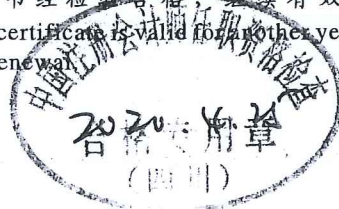 书经检验合格，继续有效
certificate is valid for another ye
enewal.
中国注册会计师任职资格检查
2020.4.
合格专用章
（四川）